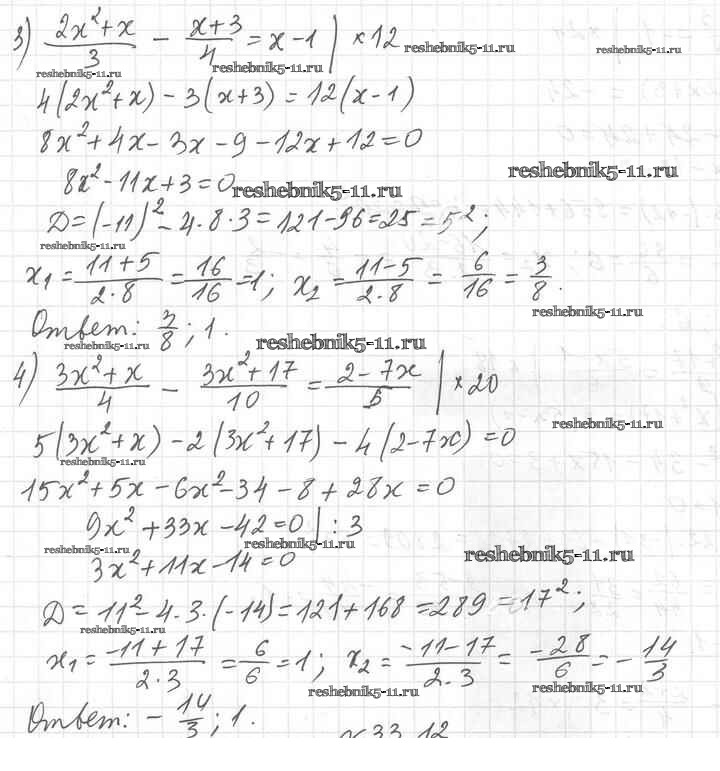 3) (2x²+x)/3 − (x+3)/4 = x−1 | ×12
reshebnik5-11.ru reshebnik5-11.ru
reshebnik5-11.ru reshebnik5-11.ru
4(2x²+x)−3(x+3)=12(x−1)
8x²+4x−3x−9−12x+12=0
reshebnik5-11.ru
8x²−11x+3=0 reshebnik5-11.ru
D=(−11)²−4·8·3=121−96=25=5²;
reshebnik5-11.ru
x₁=(11+5)/(2·8)=16/16=1; x₂=(11−5)/(2·8)=6/16=3/8.
reshebnik5-11.ru
Ответ: 3/8; 1.
reshebnik5-11.ru reshebnik5-11.ru
4) (3x²+x)/4 − (3x²+17)/10 = (2−7x)/5 | ×20
reshebnik5-11.ru
5(3x²+x)−2(3x²+17)−4(2−7x)=0
reshebnik5-11.ru
15x²+5x−6x²−34−8+28x=0
9x²+33x−42=0 | :3
reshebnik5-11.ru reshebnik5-11.ru reshebnik5-11.ru
3x²+11x−14=0
D=11²−4·3·(−14)=121+168=289=17²;
reshebnik5-11.ru
x₁=(−11+17)/(2·3)=6/6=1; x₂=(−11−17)/(2·3)=−28/6=−14/3
reshebnik5-11.ru reshebnik5-11.ru
Ответ: −14/3; 1.
reshebnik5-11.ru